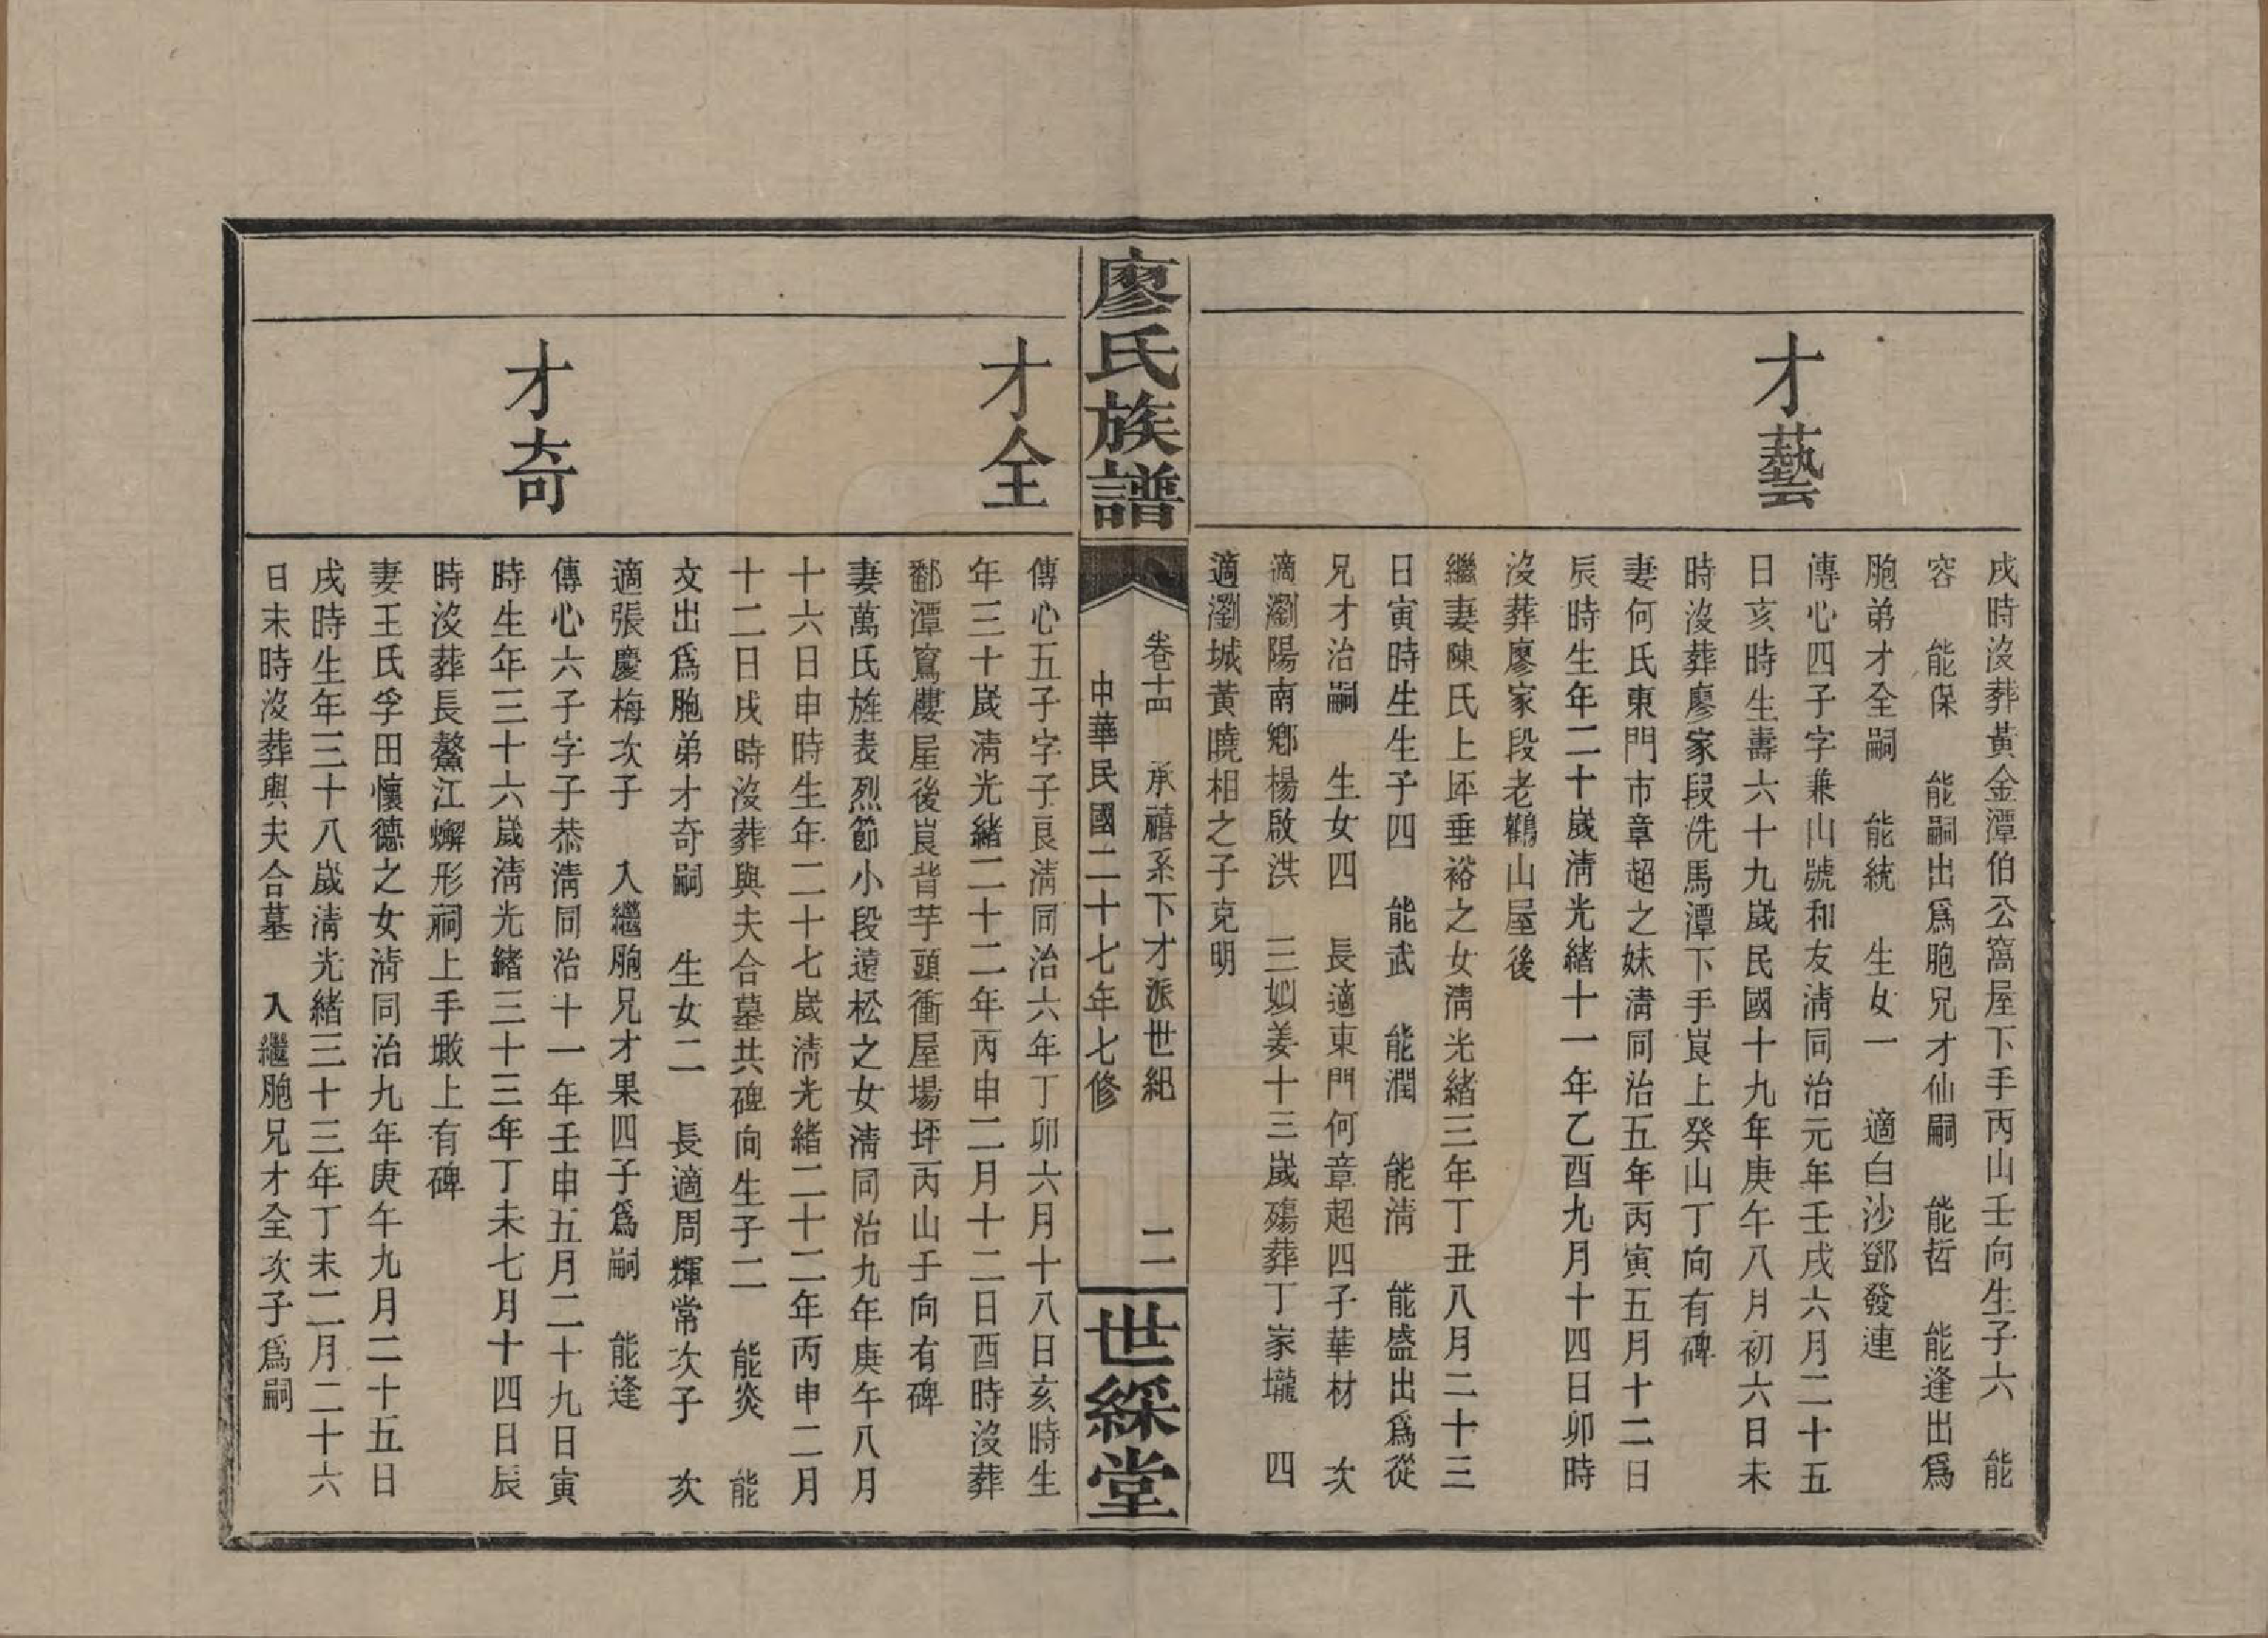 才藝
戌時沒葬黃金潭伯公窩屋下手丙山壬向生子六 能
容 能保 能嗣出爲胞兄才仙嗣 能哲 能逢出爲
胞弟才全嗣 能統 生女一 適白沙鄧發連
傳心四子字兼山號和友淸同治元年壬戌六月二十五
日亥時生壽六十九歲民國十九年庚午八月初六日未
時沒葬廖家段洗馬潭下手崀上癸山丁向有碑
妻何氏東門市章超之妹淸同治五年丙寅五月十二日
辰時生年二十歲淸光緒十一年乙酉九月十四日卯時
沒葬廖家段老鸛山屋後
繼妻陳氏上坏垂裕之女淸光緒三年丁丑八月二十三
日寅時生生子四 能武 能潤 能淸 能盛出爲從
兄才治嗣 生女四 長適東門何章超四子華材 次
適瀏陽南鄉楊啟洪 三姒姜十三歲殤葬丁家壠 四
適瀏城黃曉相之子克明
廖氏族譜
卷十四 承禧系下才派世紀 二
中華民國二十七年七修
世綵堂
才全
才奇
傳心五子字子良淸同治六年丁卯六月十八日亥時生
年三十歲淸光緒二十二年丙申二月十二日酉時沒葬
鄱潭窵樓屋後崀背芋頭衝屋場坪丙山壬向有碑
妻萬氏旌表烈節小段遠松之女淸同治九年庚午八月
十六日申時生年二十七歲淸光緒二十二年丙申二月
十二日戌時沒葬與夫合墓共碑向生子二 能炎 能
文出爲胞弟才奇嗣 生女二 長適周輝常次子 次
適張慶梅次子 入繼胞兄才果四子爲嗣 能逢
傳心六子字子恭淸同治十一年壬申五月二十九日寅
時生年三十六歲淸光緒三十三年丁未七月十四日辰
時沒葬長鰲江蠏形祠上手墩上有碑
妻王氏孚田懷德之女淸同治九年庚午九月二十五日
戌時生年三十八歲淸光緒三十三年丁未二月二十六
日未時沒葬與夫合墓 入繼胞兄才全次子爲嗣